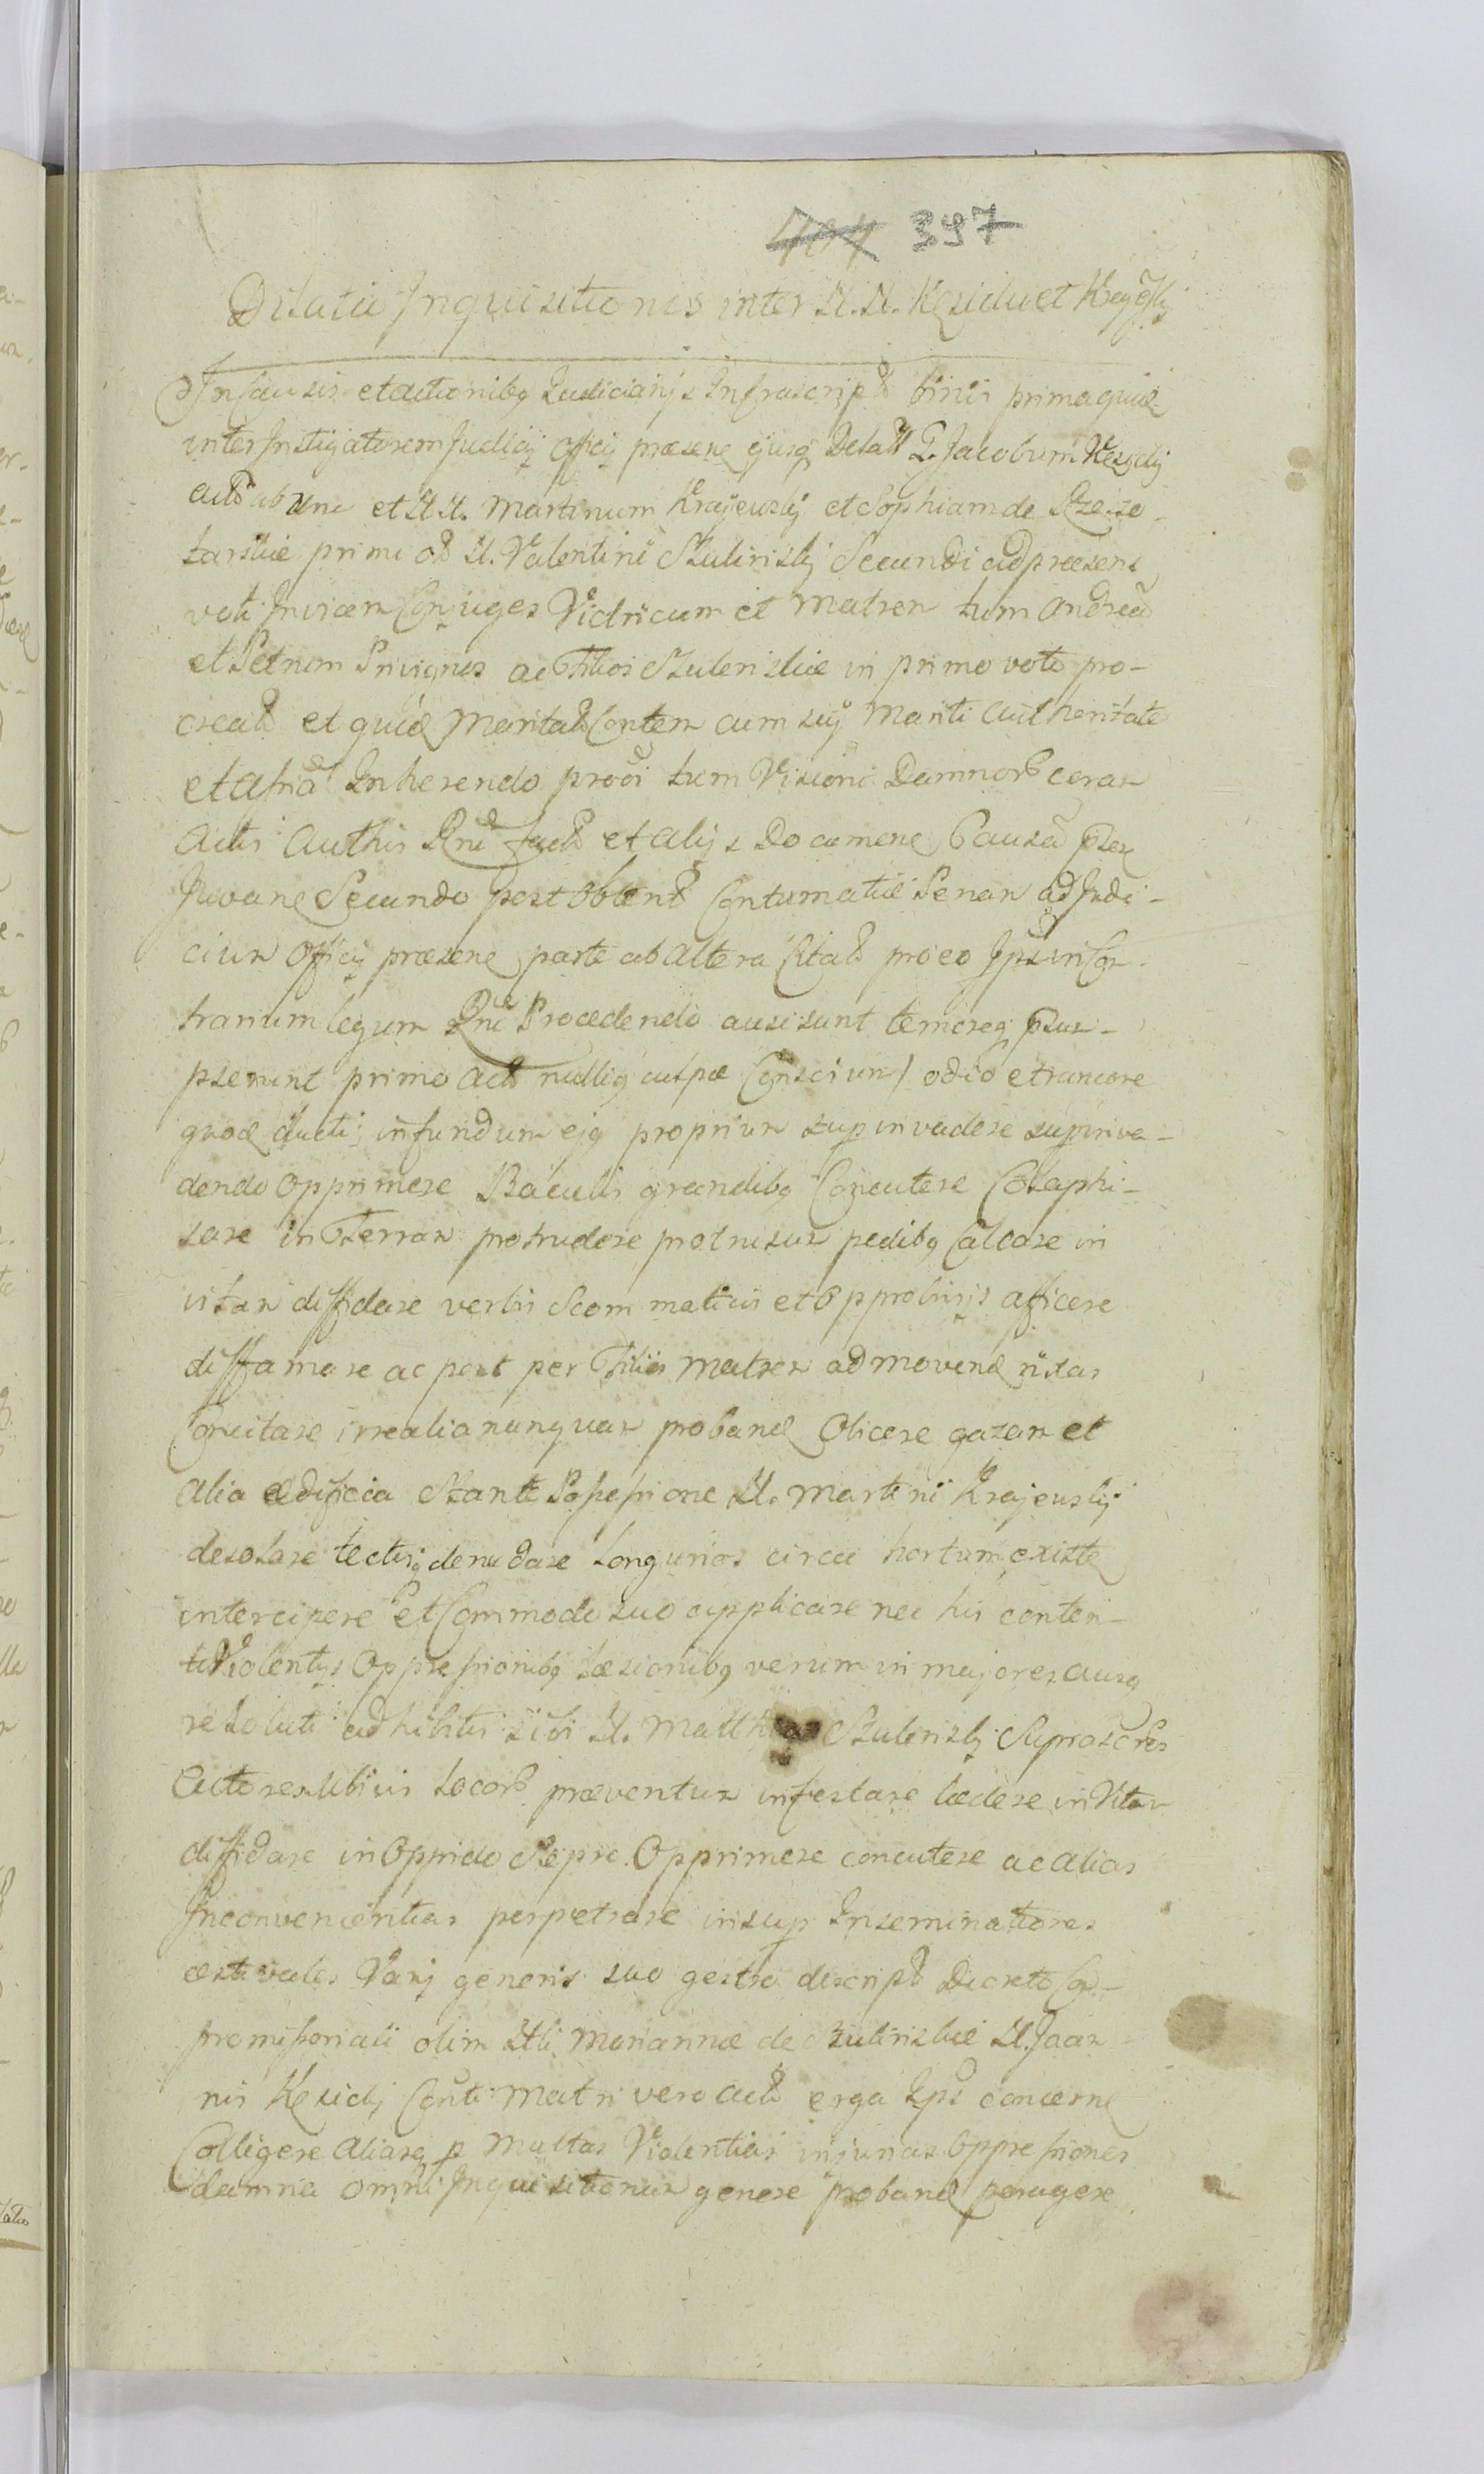 404 397
Dilatio Inquisitionis inter N.N. Kezidu et Krajewsky
In Causis et actionibq Judicianÿs Infrascript binis prima quidē
inter Instigatorem Judicÿ Officÿ præsene ejusq Delatt G. Jacobum Kezidÿ
ab una et N.N. Martinum Krajewskÿ et Sophiam de
primi N. Valentini Szuliriskÿ Secundi ad præsens
voti Invicem Conjuges Vidricum et Matrem tum Andreā
et Petrum Privignos ac Filios Szuleriskie in primo voto pro-
creatt et quidē Maritatt Conten cum suÿ Mariti Autheritate
et Inherendo tum Visioni Damnor coram
Actis Authis fact et alÿs Documene Causā
Juvane Secundo post obtent Contumatiæ Penam ad Judi-
cium Officÿ præsene parte ab altera Citatt pro eo Ipsū in Con-
trarium legum Procedendo ausi sunt temereq præsu-
pserunt primo Actt nulliq culpæ Conscium odio et rancore
quodā ducti in fundum ejq proprium sup invadere supinva-
dendo opprimere Baculis grandibq Concutere Colaphi-
sare in Terram protrudere protrusum pedibq Calcare in
vitam diffidare verbis Scommaticis et Opprobriosis afficere
diffamare ac post per Filios Matrem admovend rixas
Concitare irrealia nunquam proband Obicere gazam et
alia ædificia Stante Possessione N. Martini Krajewskÿ
desolare tectisq denudare Longurios circa hortum existē
intercipere et Commodo suo applicare nec his conten-
ti Violentÿs Oppressionibq læsionibq verum in majores ausq
resoluti adhibitis sibi N. Matthia Szuleriskÿ Suprascrēs
Actores ubivis locor præventum infestare lædere in Vitam
diffidare in Oppido Opprimere concutere ac alias
Inconvenientias perpetrare insup Inseminationes
æstivales Varÿ generis suo gestro descript Decreto Com-
promissoriali olim Mariannæ de Szuliriskie N. Joan-
nis Kezidÿ Conti Matri vero Actt erga Ips concerne
Colligere aliasq p Multas Violentias injurias Oppressiones
damna omni Inquisitionum genere proband peragere